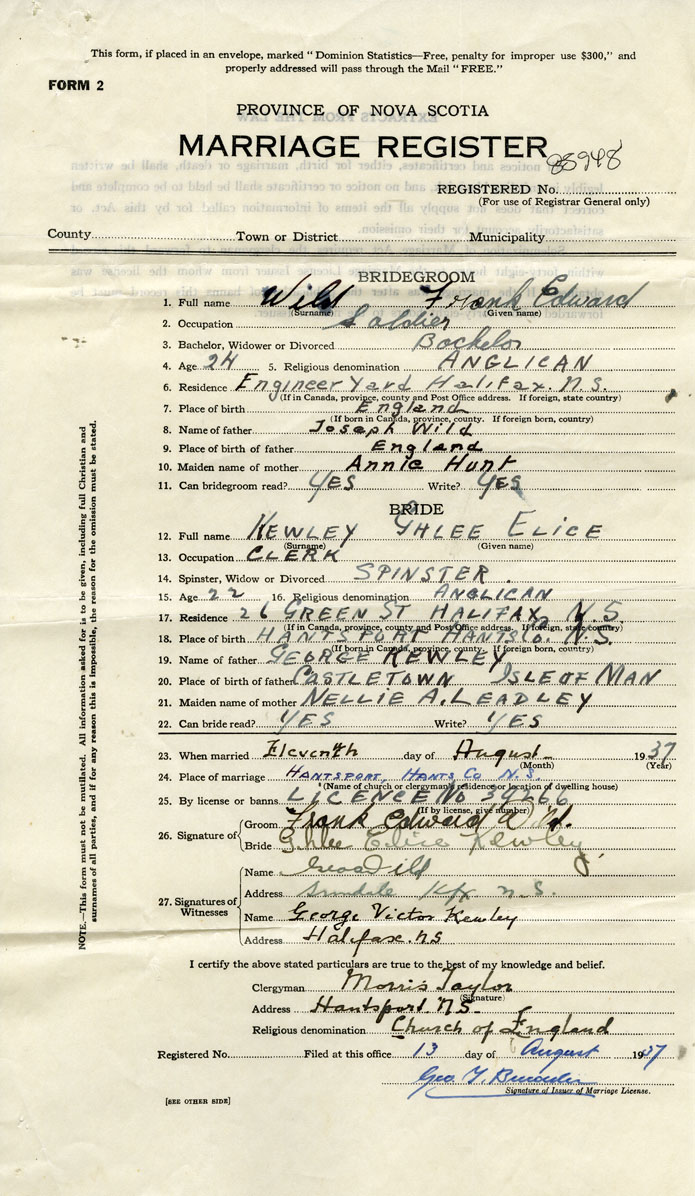 This form, if placed in an envelope, marked "Dominion Statistics—Free, penalty for improper use $300," and
properly addressed will pass through the Mail "FREE."
FORM 2
PROVINCE OF NOVA SCOTIA
MARRIAGE REGISTER
REGISTERED No.
(For use of Registrar General only)
County Town or District Municipality
BRIDEGROOM
1. Full name Wild Frank Edward
(Surname) (Given name)
2. Occupation Soldier
3. Bachelor, Widower or Divorced Bachelor
4. Age 24 5. Religious denomination ANGLICAN
6. Residence Engineer Yard Halifax. N.S.
(If in Canada, province, county and Post Office address. If foreign, state country)
7. Place of birth England
(If born in Canada, province, county. If foreign born, country)
8. Name of father Joseph Wild
9. Place of birth of father England
10. Maiden name of mother Annie Hunt
11. Can bridegroom read? YES Write? YES
BRIDE
12. Full name KEWLEY GHLEE ELICE
(Surname) (Given name)
13. Occupation CLERK
14. Spinster, Widow or Divorced SPINSTER.
15. Age 22 16. Religious denomination ANGLICAN
17. Residence 26 GREEN ST HALIFAX, N.S.
(If in Canada, province, county and Post Office address. If foreign, state country)
18. Place of birth HANTSPORT HANTS Co. N.S.
(If born in Canada, province, county. If foreign born, country)
19. Name of father GEORGE KEWLEY
20. Place of birth of father CASTLETOWN ISLE OF MAN
21. Maiden name of mother NELLIE A. LEADLEY
22. Can bride read? YES Write? YES
23. When married Eleventh day of August 1937
(Month) (Year)
24. Place of marriage HANTSPORT, HANTS Co N.S.
(Name of church or clergyman's residence or location of dwelling house)
25. By license or banns LICENCE No
(If by license, give number)
26. Signature of Groom Frank Edward Wild.
Bride Ghlee Elice Kewley
27. Signatures of Witnesses
Name Wild
Address Hfx N.S.
Name George Victor Kewley
Address Halifax. NS
I certify the above stated particulars are true to the best of my knowledge and belief.
Clergyman Morris Taylor
(Signature)
Address Hantsport. N.S.
Religious denomination Church of England
Registered No. Filed at this office 13 day of August 1937
Geo
Signature of Issuer of Marriage License.
[SEE OTHER SIDE]
NOTE.—This form must not be mutilated. All information asked for is to be given, including full Christian and
surnames of all parties, and if for any reason this is impossible, the reason for the omission must be stated.